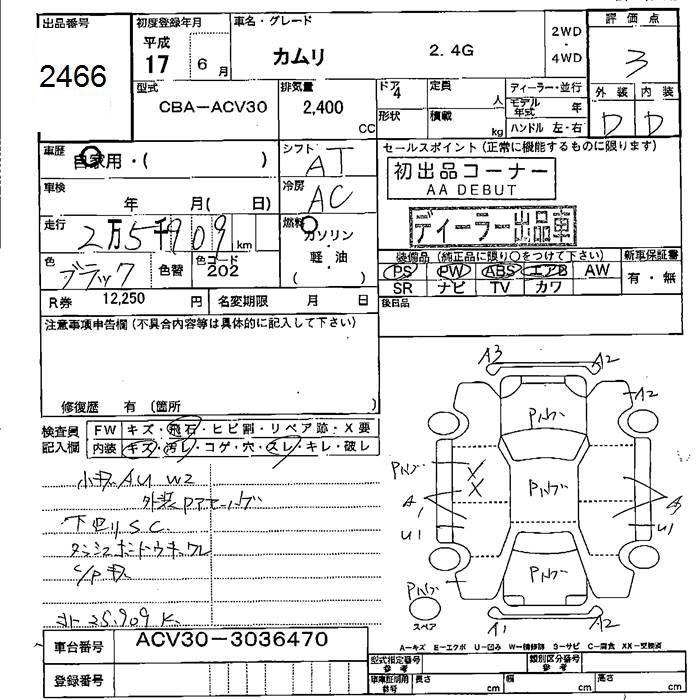 出品番号
2466
初度登録年月
平成
17 6 月
車名・グレード
カムリ 2.4G
2WD
・
4WD
評価点
3
外装 内装
D D
型式
CBA-ACV30
排気量
2,400
CC
ドア
4
形状
定員
人
積載
kg
ディーラー・並行
モデル年式 年
ハンドル 左・右
車歴
自家用・( )
シフト
AT
車検
年 月( 日)
冷房
AC
走行
2万5千909 km
燃料
ガソリン
・
軽・油
( )
色
ブラック
色替
色コード
202
R券 12,250 円
名変期限 月 日
セールスポイント(正常に機能するものに限ります)
初出品コーナー
AA DEBUT
ディーラー出品車
装備品(純正品に限り○をつけて下さい)
新車保証書
PS PW ABS エアB AW
SR ナビ TV カワ
有・無
後日品
注意事項申告欄(不具合内容等は具体的に記入して下さい)
修復歴 有 (箇所 )
検査員
記入欄
FW キズ・飛石・ヒビ割・リペア跡・X要
内装 キズ・汚レ・コゲ・穴・スレ・キレ・破レ
小キズAU W2
下廻りS.C.
25.909K
A3
A2
A2
Pハゲ
Pハゲ
X
X
Pハゲ
A1
U1
U1
Pハゲ
Pハゲ
A1
A2
スペア
A-キズ E-エクボ U-凹み W-補修跡 S-サビ C-腐食 XX-交換済
車台番号
ACV30-3036470
登録番号
型式指定番号
参考
類別区分番号
参考
車庫証明用
参考
長さ cm
幅 cm
高さ cm